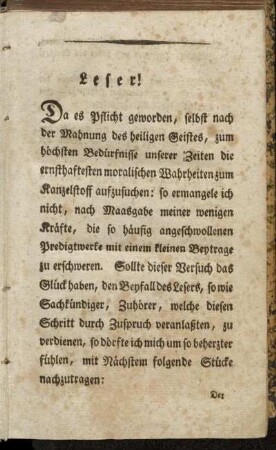 Leser!
Da es Pflicht geworden, selbst nach
der Mahnung des heiligen Geistes, zum
höchsten Bedürfnisse unserer Zeiten die
ernsthaftesten moralischen Wahrheiten zum
Kanzelstoff aufzusuchen: so ermangele ich
nicht, nach Maasgabe meiner wenigen
Kräfte, die so häufig angeschwollenen
Predigtwerke mit einem kleinen Beytrage
zu erschweren. Sollte dieser Versuch das
Glück haben, den Beyfall des Lesers, so wie
Sachkündiger, Zuhörer, welche diesen
Schritt durch Zuspruch veranlaßten, zu
verdienen, so dörfte ich mich um so beherzter
fühlen, mit Nächstem folgende Stücke
nachzutragen:
Der